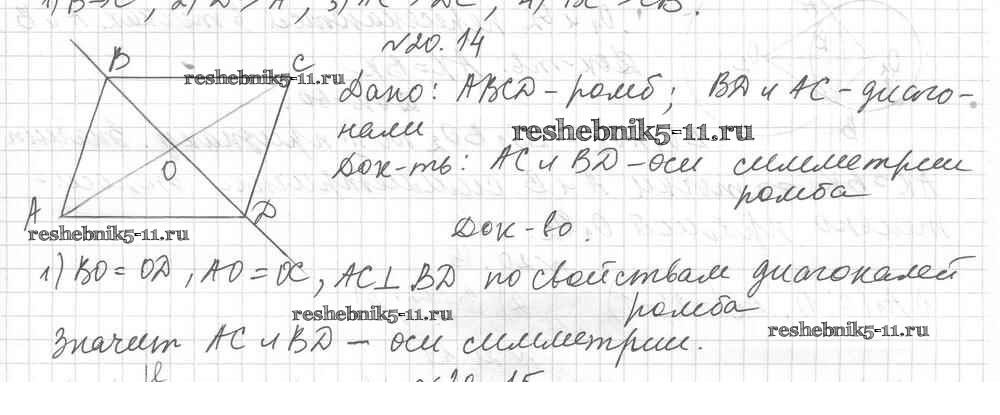 №20.14
B
C
reshebnik5-11.ru
Дано: ABCD - ромб; BD и AC - диаго-
нали
reshebnik5-11.ru
O
Док-ть: AC и BD - оси симметрии
ромба
A
D
reshebnik5-11.ru
Док-во.
1) BO = OD, AO = OC, AC⊥ BD по свойствам диагоналей
ромба
reshebnik5-11.ru
reshebnik5-11.ru
Значит AC и BD - оси симметрии.